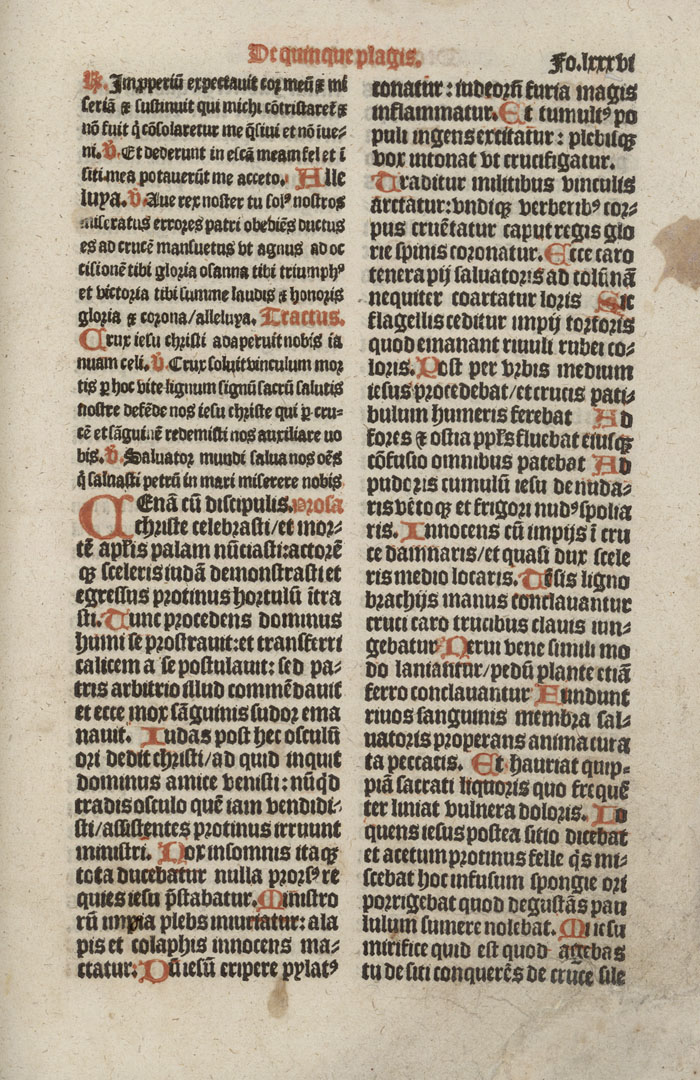 De quinque plagis.
Fo.lxxxvi
R. Impperiū expectauit cor meū ⁊ mi
seriā ⁊ sustinuit qui michi cōtristaret ⁊
nō fuit q̄ cōsolaretur me q̄siui et nō iue-
ni. V. Et dederunt in escā meam fel et ī
siti mea potauerūt me aceto. Alle
luya. V. Aue rex noster tu solꝰ nostros
miseratus errores patri obediēs ductus
es ad crucē mansuetus vt agnus ad oc
cisionē tibi gloria osanna tibi triumphꝰ
et victoria tibi summe laudis ⁊ honoris
gloria ⁊ corona/alleluya. Tractus.
Crux iesu christi adaperuit nobis ia
nuam celi. V. Crux soluit vinculum mor
tis ꝑ hoc vite lignum signū sacrū salutis
nostre defēde nos iesu christe qui ꝑ cru-
cē et sāguinē redemisti nos auxiliare uo
bis. V. Saluator mundi salua nos oēs
q̄ saluasti petrū in mari miserere nobis
CEnā cū discipulis. Prosa
christe celebrasti/et mor-
tē aplis palam nūciasti: actorē
qꝫ sceleris iudā demonstrasti et
egressus protinus hortulū ītra
sti. Tunc procedens dominus
humi se prostrauit: et transferri
calicem a se postulauit: sed pa-
tris arbitrio illud commēdauit
et ecce mox sāguinis sudor ema
nauit. Iudas post hec osculū
ori dedit christi/ad quid inquit
dominus amice venisti: nūqd
tradis osculo quē iam vendidi-
sti/assistentes protinus irruunt
ministri. Nox insomnis itaqꝫ
tota ducebatur nulla prorsꝰ re
quies iesu p̄stabatur. Ministro
rū impia plebs iniuriatur: ala
pis et colaphis innocens ma-
ctatur: Dū iesū eripere pylatꝰ
conatur: iudeorū furia magis
inflammatur. Et tumultꝰ po
puli ingens excitatur: plebisqꝫ
vox intonat vt crucifigatur.
Traditur militibus vinculis
arctatur: vndiqꝫ verberibꝰ cor-
pus cruētatur caput regis glo
rie spinis coronatur. Ecce caro
tenera pij saluatoris ad colūnā
nequiter coartatur loris Sic
flagellis ceditur impij tortoris
quod emanant riuuli rubei co-
loris. Post per vrbis medium
iesus procedebat/et crucis pati-
bulum humeris ferebat Ad
fores ⁊ ostia ppls fluebat eiusqꝫ
cōfusio omnibus patebat Ad
pudoris cumulū iesu denuda-
ris vēto qꝫ et frigori nudꝰ spolia
ris. Innocens cū impijs ī cru
ce damnaris/et quasi dux scele
ris medio locaris. Tēsis ligno
brachijs manus conclauantur
cruci caro trucibus clauis iun-
gebatur Nerui vene simili mo
do laniantur/pedū plante etiā
ferro conclauantur Fundunt
riuos sanguinis membra sal-
uatoris properans anima cura
ta peccatis. Et hauriat quip-
piā sacrati liquoris quo frequē
ter liniat vulnera doloris. Lo
quens iesus postea sitio dicebat
et acetum protinus felle q̄s mi-
scebat hoc infusum spongie ori
porrigebat quod degustās pau
lulum sumere nolebat. Mi iesu
mirifice quid est quod agebas
tu de siti conquerēs de cruce sile